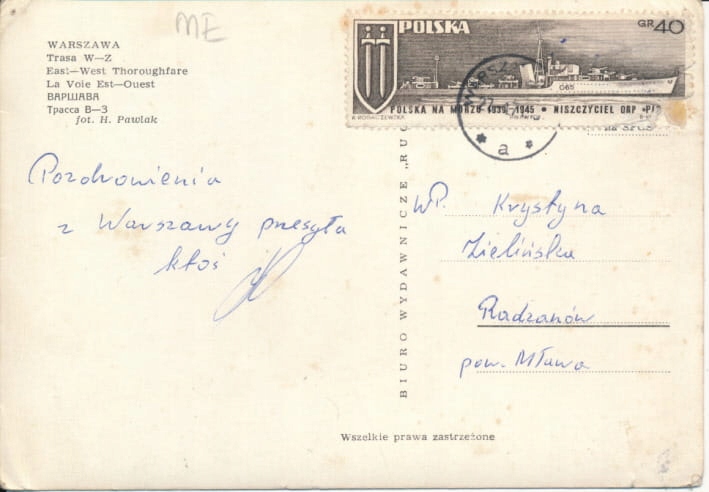 ME
WARSZAWA
Trasa W—Z
East—West Thoroughfare
La Voie Est—Ouest
ВАРШАВА
Трасса В—З
fot. H. Pawlak
POLSKA
GR 40
065
POLSKA NA MORZU 1939-1945 • NISZCZYCIEL ORP
a
Pozdrowienia
z Warszawy przesyła
ktoś
BIURO WYDAWNICZE „RUC
WP. Krystyna
Zielińska
Radzanów
pow. Mława
Wszelkie prawa zastrzeżone